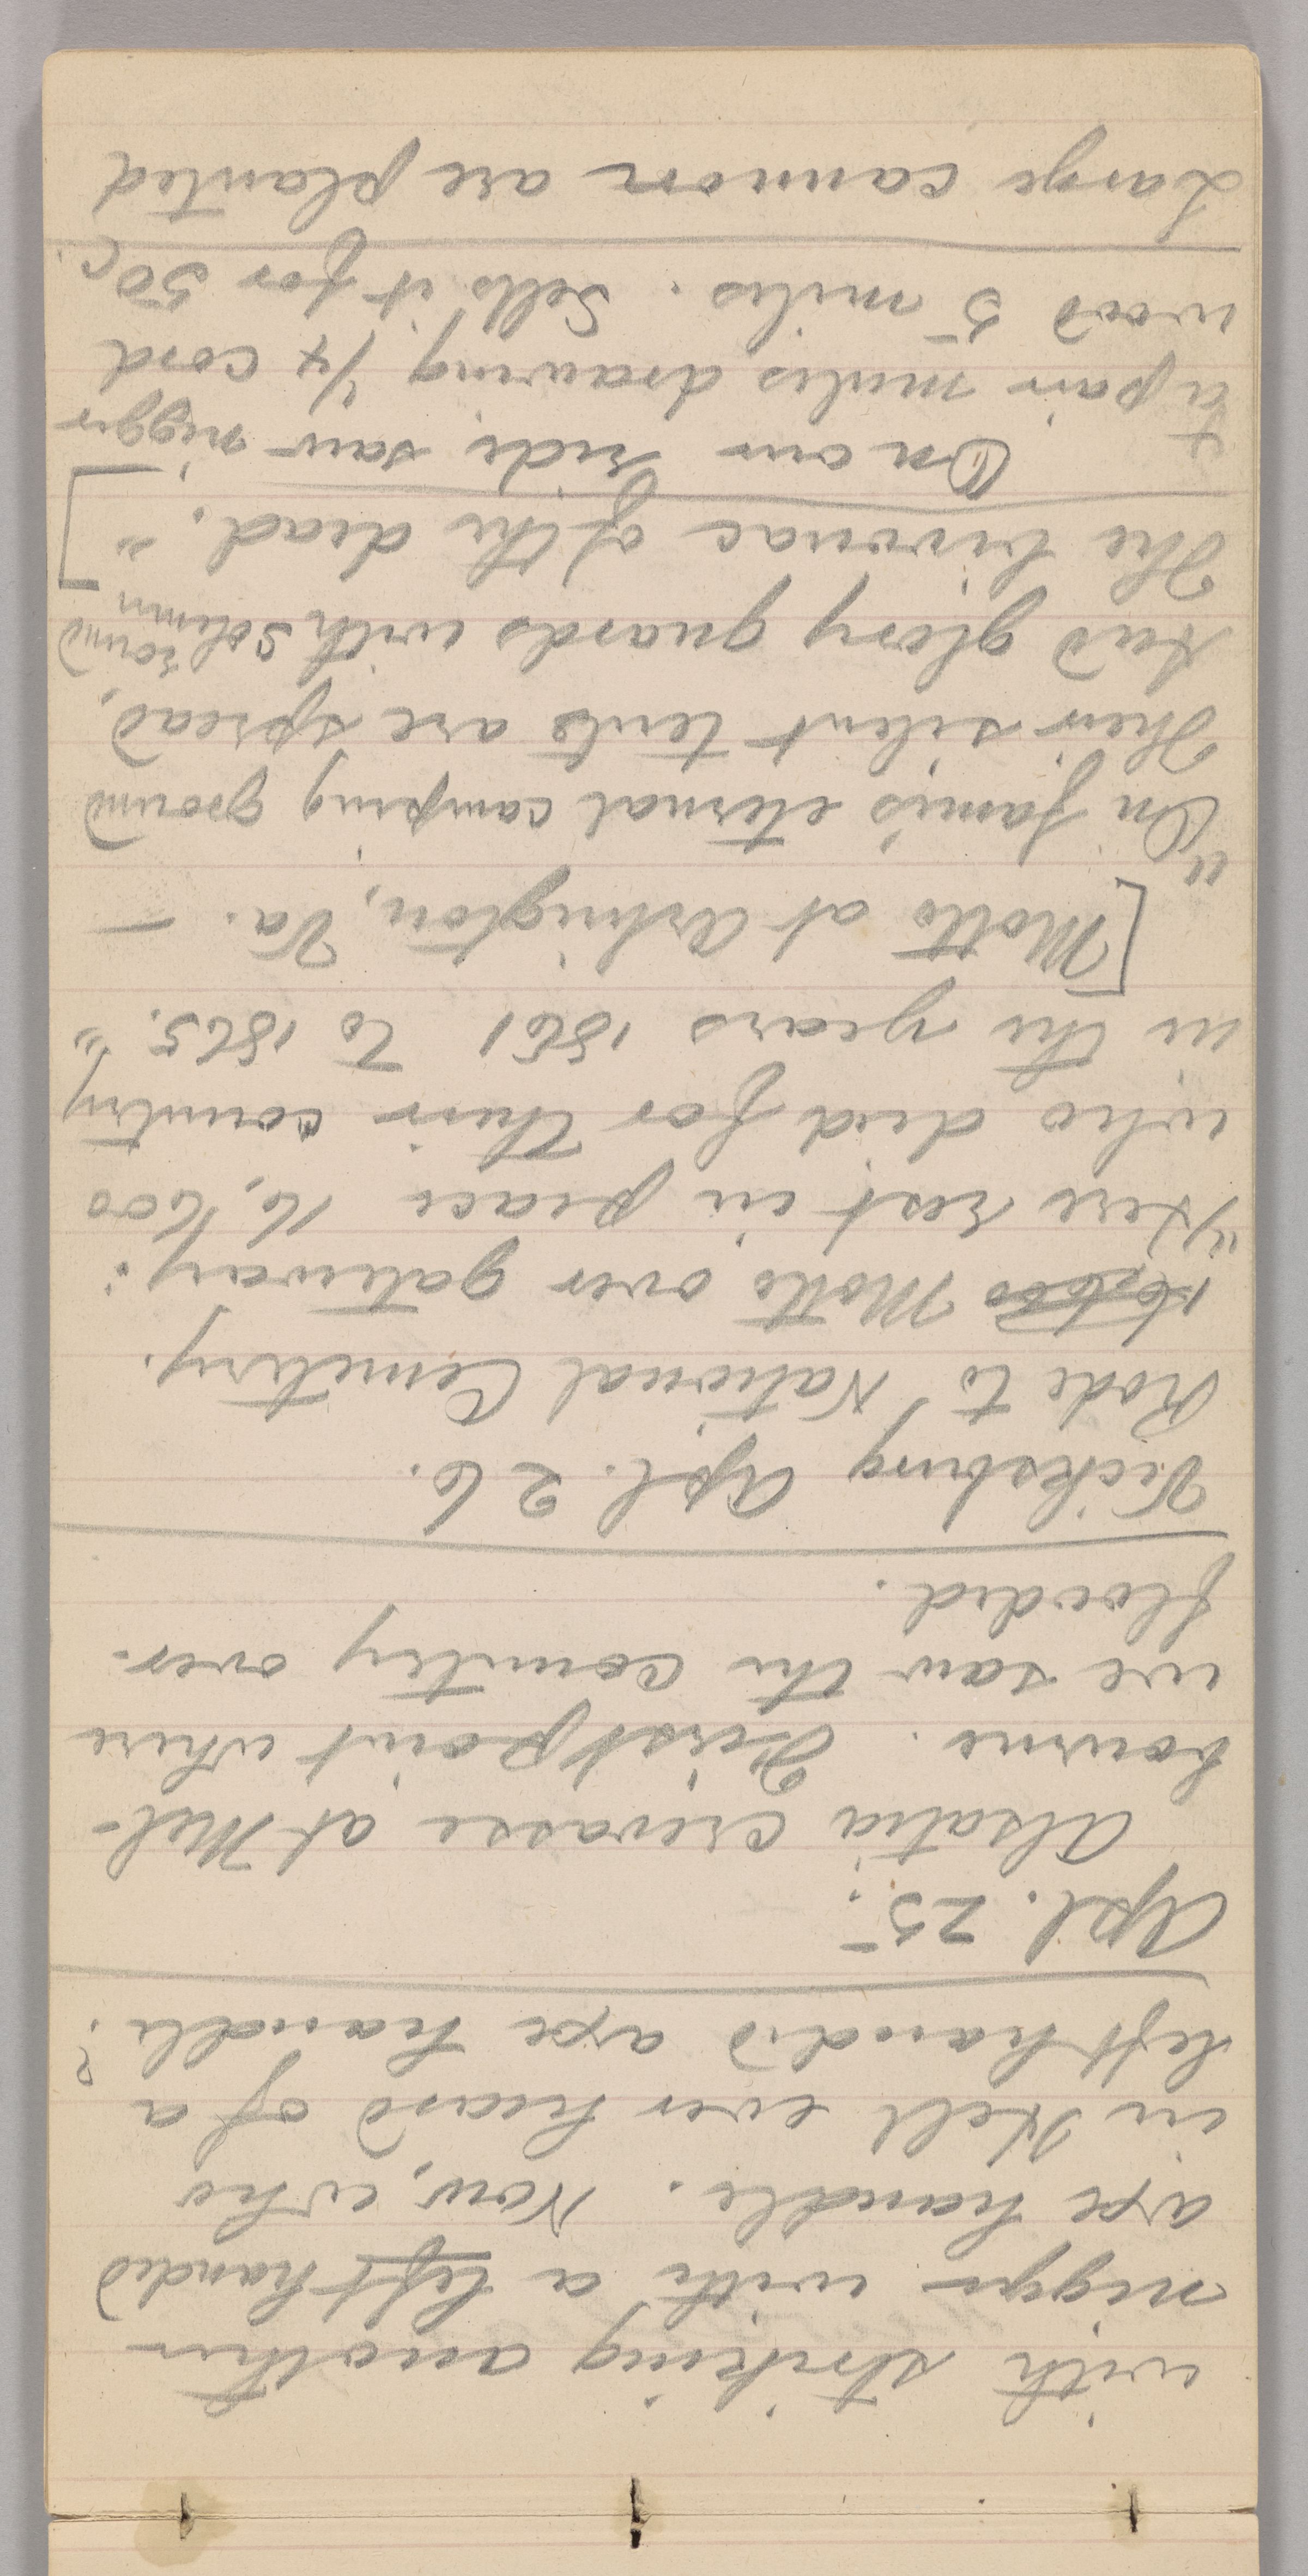 with striking another
nigger with a left handed
axe handle. Now, who
in Hell ever heard of a
left handed axe handle?
Apl. 25:
Alsatia crevasse at Mel-
bourne. First point where
we saw the country over-
flooded.
Vicksburg Apl. 26.
Rode to National Cemetery.
16,600 Motto over gateway:
"Here rest in peace 16,600
who died for their country
in the years 1861 to 1865."
[Motto at Arlington, Va. —
"On fame's eternal camping ground
Their silent tents are spread,
And glory guards with solemn round
The bivouac of the dead."]
On our ride, saw nigger
+ a pair mules drawing 1/4 cord
wood 5 miles. Sells it for 50c.
Large cannon are planted